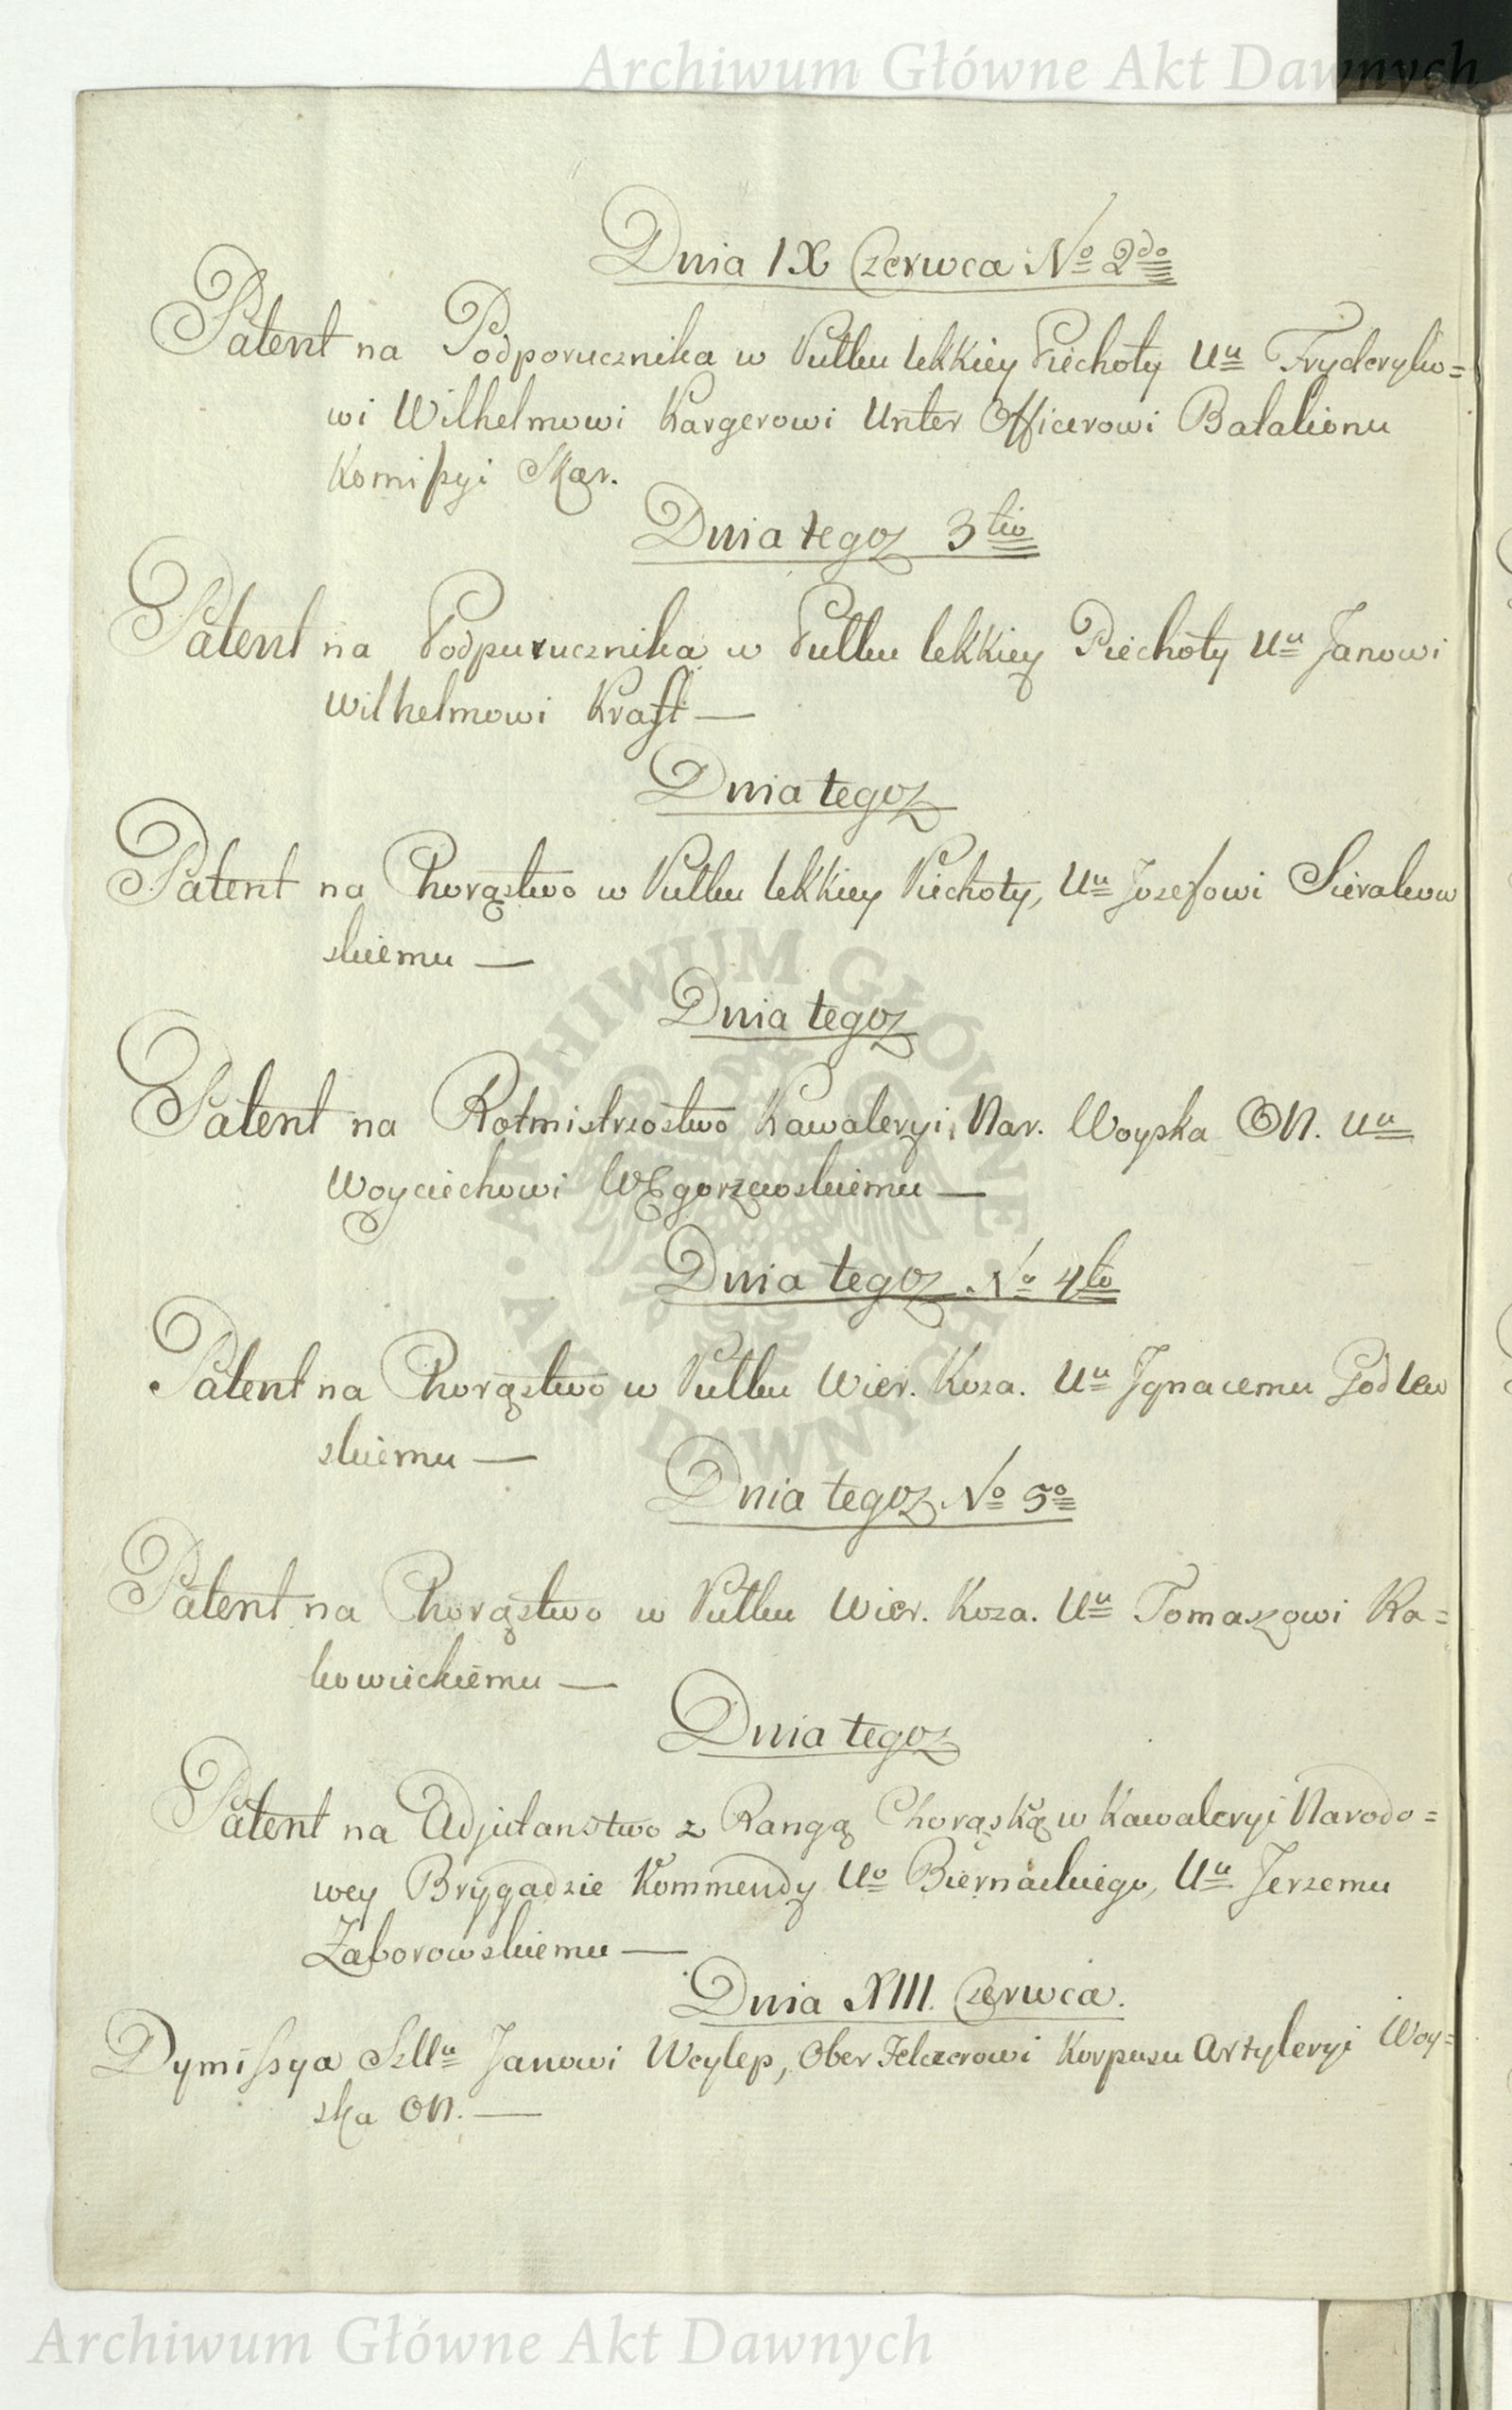 Archiwum Główne Akt Dawnych
Dnia IX Czerwca No 2do
Patent na Podporucznika w Pułku lekkiey Piechoty Uu Fryderyko=
wi Wilhelmowi Kargerowi Unter Officerowi Batalionu
Komissyi Skar.
Dnia tegoż 3tio
Patent na Podporucznika w Pułku lekkiey Piechoty Uu Janowi
Wilhelmowi Kraft —
Dnia tegoż
Patent na Chorąstwo w Pułku lekkiey Piechoty, Uu Jozefowi Sierakow
skiemu —
Dnia tegoż
Patent na Rotmistrzostwo Kawaleryi Nar. Woyska ON. Uu
Woyciechowi Węgorzewskiemu —
Dnia tegoż No 4to
Patent na Chorąstwo w Pułku Wier. Koza. Uu Ignacemu Godlew
skiemu —
Dnia tegoż No 5o
Patent na Chorąstwo w Pułku Wier. Koza. Uu Tomaszowi Ra=
kowieckiemu —
Dnia tegoż
Patent na Adjutanstwo z Rangą Chorąską w Kawaleryi Narodo=
wey Brygadzie Kommendy Uo Biernackiego, Uu Jerzemu
Zaborowskiemu —
Dnia XIII. Czerwca.
Dymissya Szllu Janowi Weylep, Ober Felczerowi Korpusu Artyleryi Woy=
ska ON. —
ARCHIWUM GŁÓWNE AKT DAWNYCH
Archiwum Główne Akt Dawnych